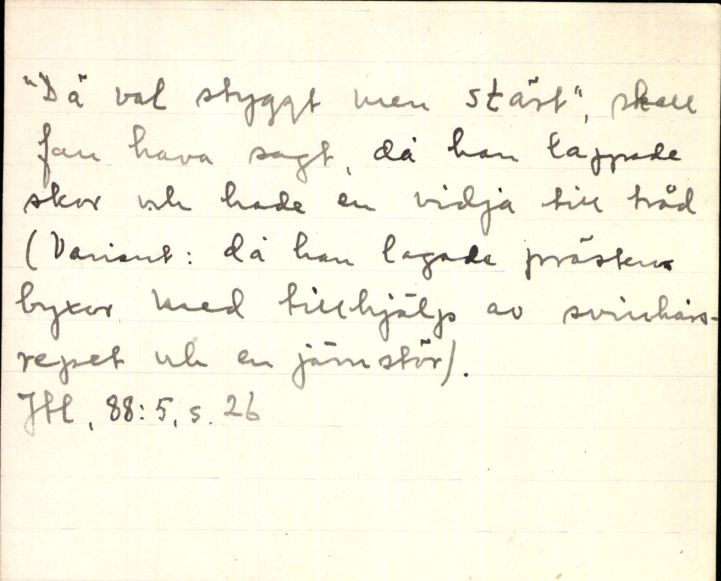 "Dä val styggt men stärt", skall
fan hava sagt, då han lappade
skor och hade en vidja till tråd
(Variant: då han lagade prästens
byxor med tillhjälp av svinhårs-
repet och en järnstör).
JHl, 88:5, s. 26